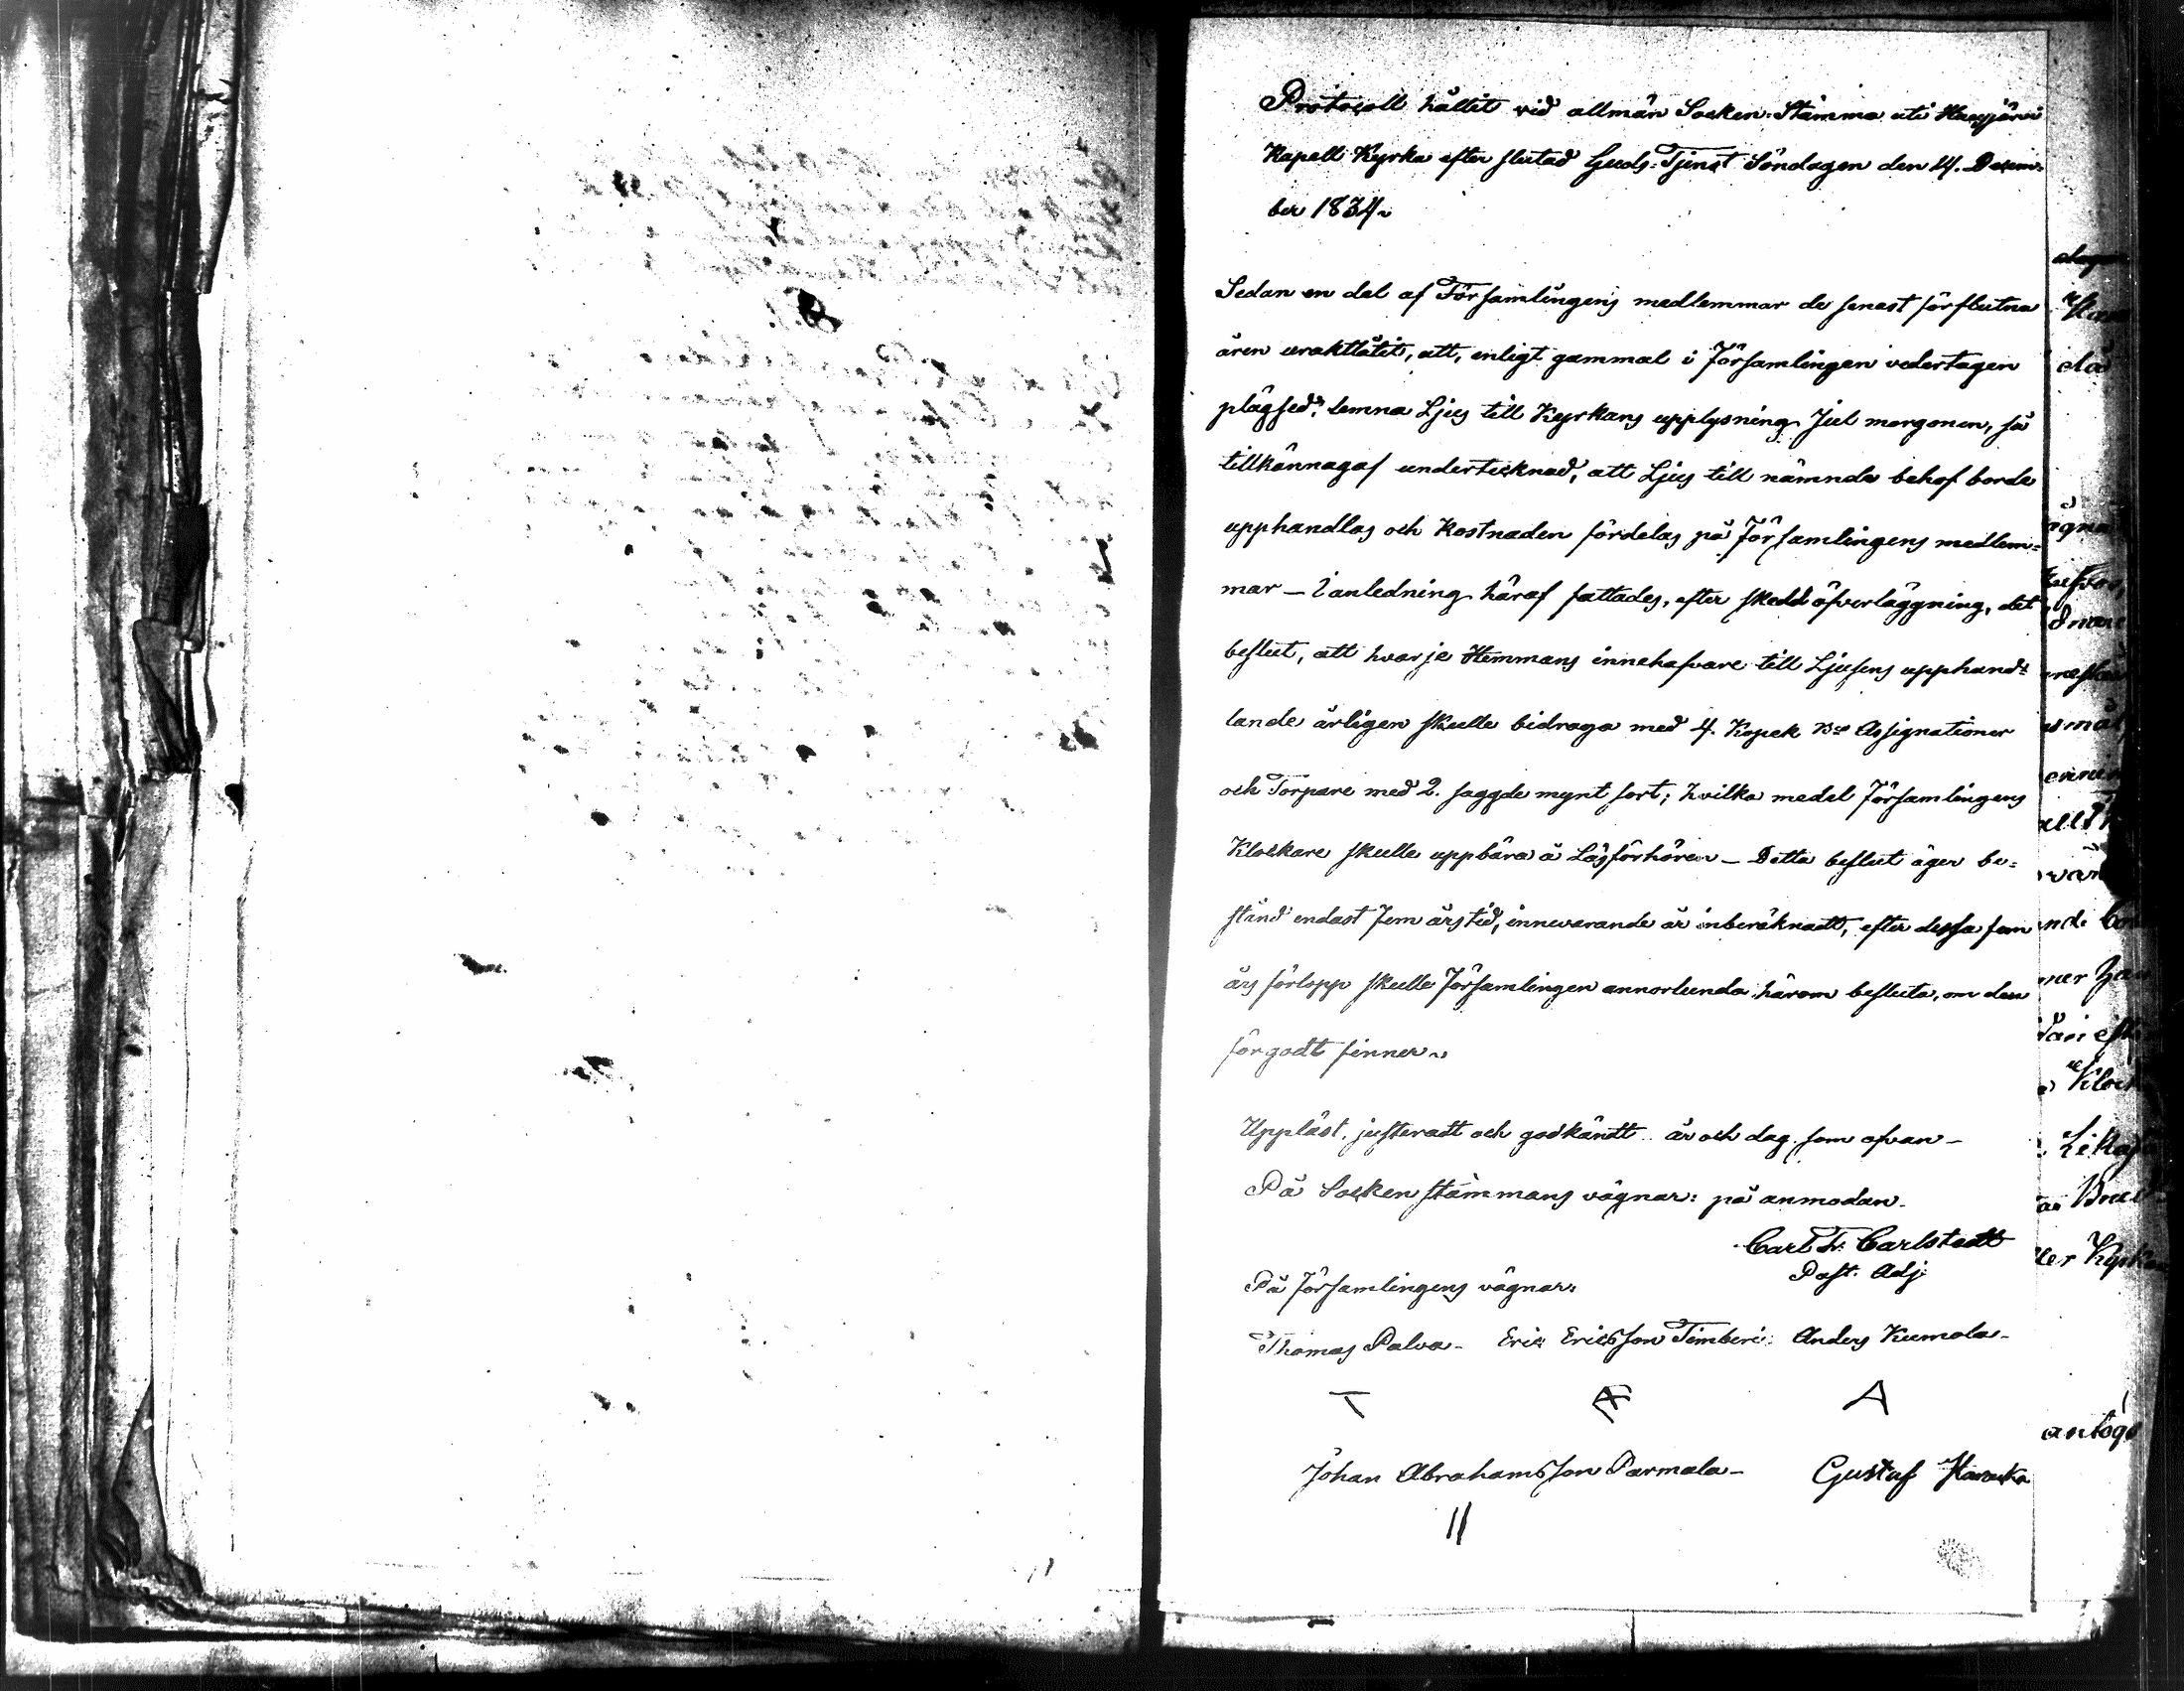 Protocoll hållit vid allmän Socken-Stämma uti
Kapell Kyrka efter slutad Guds-Tjenst Söndagen den 14. Decem-
ber 1834.
Sedan en del af Församlingens medlemmar de senast förflutna
åren uraktlåtit, att, enligt gammal i Församlingen vedertagen
plägsed, lemna Ljus till Kyrkans upplysning Jul morgonen, så
tillkännagaf undertecknad, att Ljus till nämnde behof borde
upphandlas och Kostnaden fördelas på Församlingens medlem=
mar — I anledning häraf fattades, efter skedd öfverläggning, det
beslut, att hvarje Hemmans innehafvare till Ljusens upphand=
lande årligen skulle bidraga med 4. Kopek Assignationer
och Torpare med 2. sagde mynt sort; hvilka medel Församlingens
Klockare skulle uppbära å Läsförhören — Detta beslut äger be=
stånd endast fem års tid, innevarande år inberäknadt, efter dessa fem
års förlopp skulle Församlingen annorlunda härom besluta, om den
förgodt finner.
Uppläst, justeradt och godkändt år och dag som ofvan —
På Sockenstämmans vägnar: på anmodan.
Carl Fr. Carlstedt
Past. Adj.
På Församlingens vägnar:
Thomas Palva — Eric Ericsson Timberi. Anders Kumola —
T A
Johan Abrahamsson Parmala — Gustaf